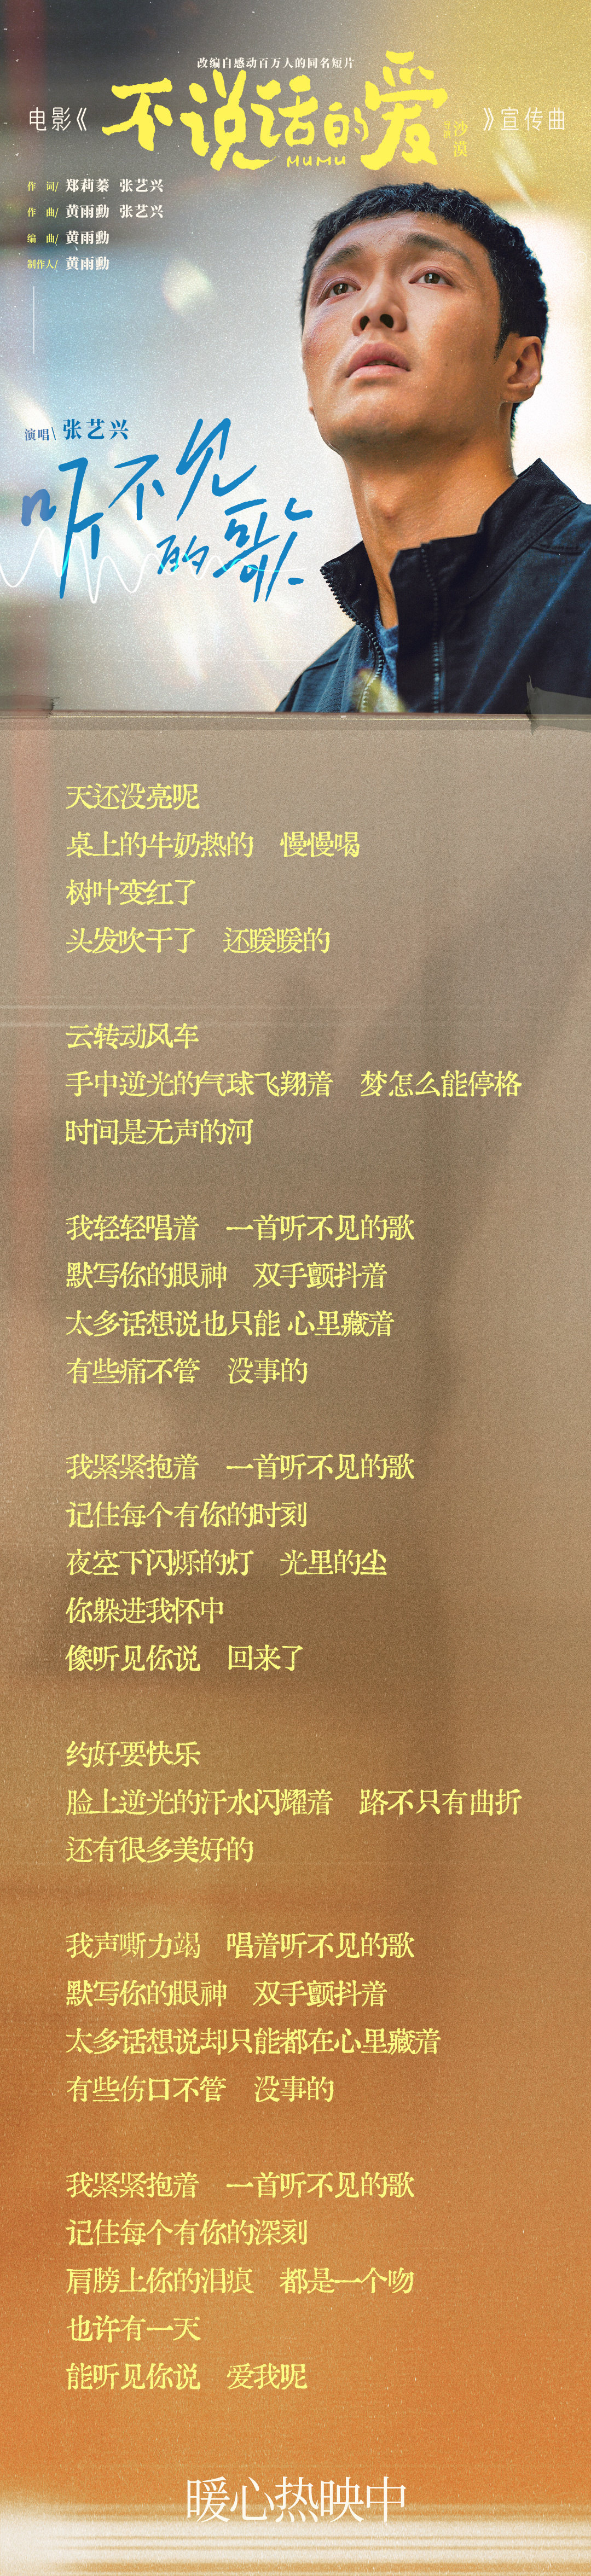 改编自感动百万人的同名短片
电影《不说话的爱》宣传曲
MUMU
沙漠
作 词/ 郑莉蓁 张艺兴
作 曲/ 黄雨勳 张艺兴
编 曲/ 黄雨勳
制作人/ 黄雨勳
演唱\ 张艺兴
听不见的歌
天还没亮呢
桌上的牛奶热的 慢慢喝
树叶变红了
头发吹干了 还暖暖的
云转动风车
手中逆光的气球飞翔着 梦怎么能停格
时间是无声的河
我轻轻唱着 一首听不见的歌
默写你的眼神 双手颤抖着
太多话想说也只能 心里藏着
有些痛不管 没事的
我紧紧抱着 一首听不见的歌
记住每个有你的时刻
夜空下闪烁的灯 光里的尘
你躲进我怀中
像听见你说 回来了
约好要快乐
脸上逆光的汗水闪耀着 路不只有曲折
还有很多美好的
我声嘶力竭 唱着听不见的歌
默写你的眼神 双手颤抖着
太多话想说却只能都在心里藏着
有些伤口不管 没事的
我紧紧抱着 一首听不见的歌
记住每个有你的深刻
肩膀上你的泪痕 都是一个吻
也许有一天
能听见你说 爱我呢
暖心热映中